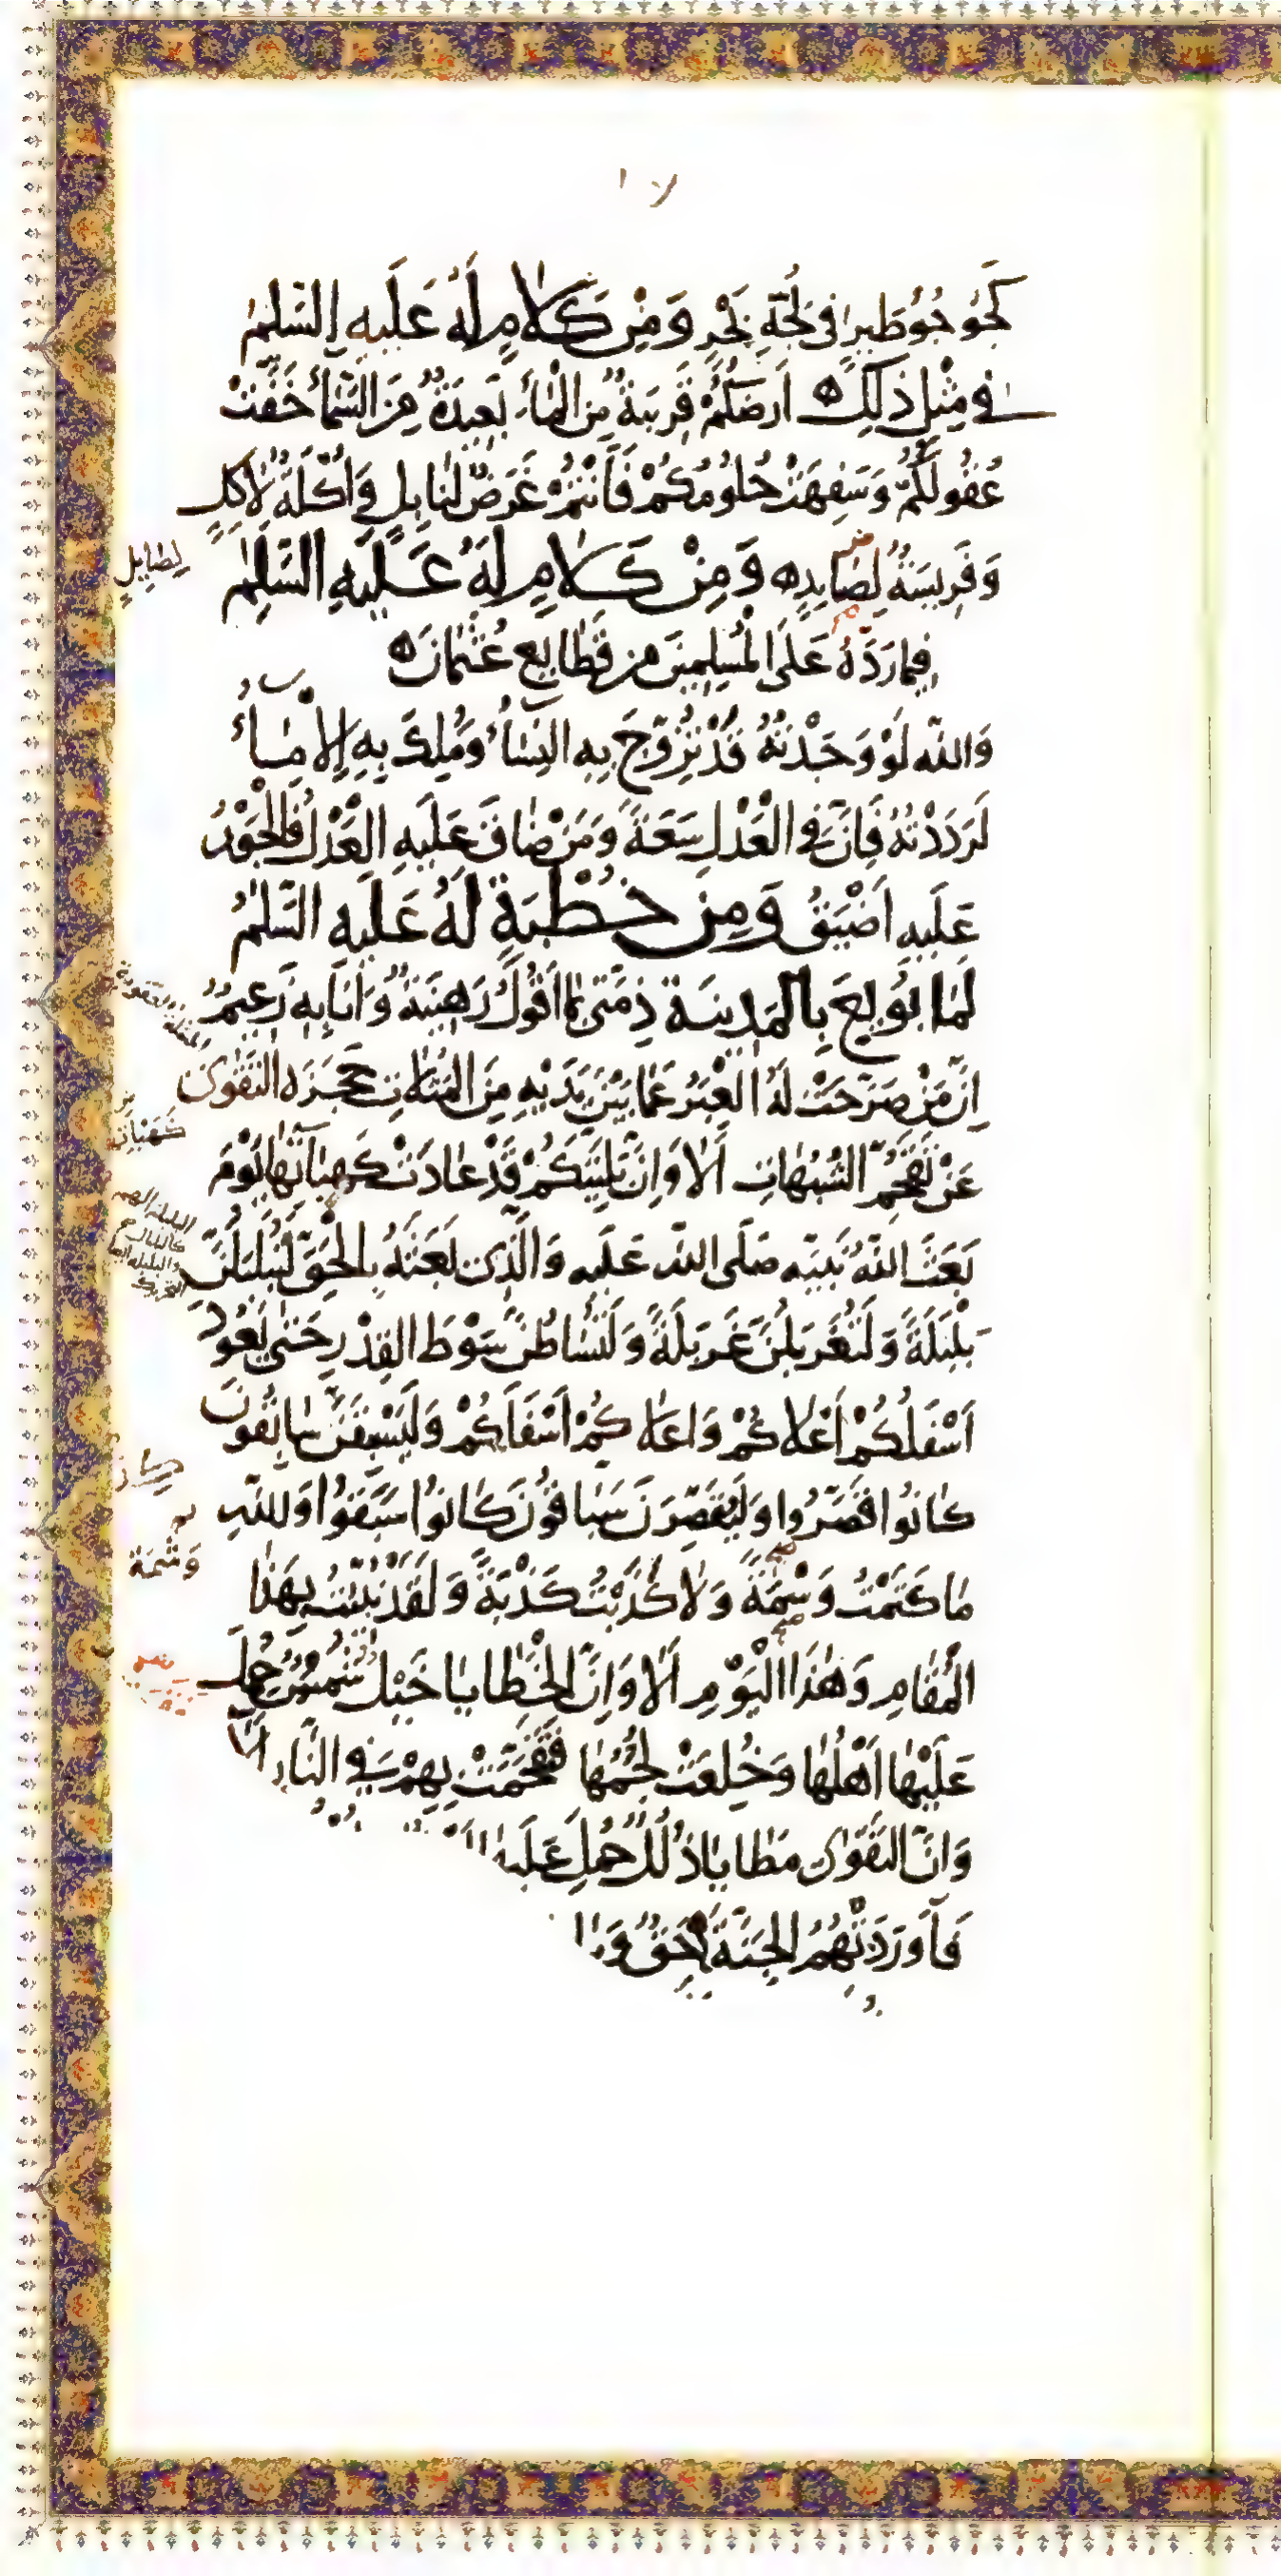 ١٧
كَجُؤجُؤِ طَيرٍ فِي لُجَّةِ بَحْرٍ وَمِنْ كَلَامٍ لَهُ عَلَيهِ السَّلمُ
فِي مِثْلِ ذلِكَ ه اَرضُكُمْ قَرِيبَةٌ مِنَ الْمَاءِ بَعِيدَةٌ مِنَ السَّمَاءِ خَفَّتْ
عُقُولُكُمْ وَسَفِهَتْ حُلُومُكُمْ فَاَنْتُمْ غَرَضٌ لِنَابِلٍ وَاُكْلَةٌ لِاٰكِلٍ
وَفَرِيسَةٌ لِصَايِدٍ ه وَمِنْ كَلَامٍ لَهُ عَلَيهِ السَّلَامُ
لِصَايِلٍ
فِيمَا رَدَّهُ عَلَى الْمُسْلِمِينَ مِنْ قَطَايِعِ عُثْمَانَ ه
وَاللّهِ لَوْ وَجَدْتُهُ قَدْ تُزُوِّجَ بِهِ النِّسَاءُ وَمُلِكَ بِهِ الْاِمَاءُ
لَرَدَدْتُهُ فَاِنَّ فِي الْعَدْلِ سَعَةً وَمَنْ ضَاقَ عَلَيهِ الْعَدْلُ فَالْجَوْرُ
عَلَيهِ اَضْيَقُ وَمِنْ خُطْبَةٍ لَهُ عَلَيهِ السَّلمُ
لَمَّا بُويِعَ بِالمَدِينَةِ ذِمَّتِي بِمَا اَقُولُ رَهِينَةٌ وَاَنَا بِهِ زَعِيمٌ
اِنَّ مَنْ صَرَّحَتْ لَهُ الْعِبَرُ عَمَّا بَيْنَ يَدَيْهِ مِنَ الْمَثُلَاتِ حَجَزَهُ التَّقْوٰى
عَنْ تَقَحُّمِ الشُّبُهَاتِ اَلَا وَاِنَّ بَلِيَّتَكُمْ قَدْ عَادَتْ كَهَيْاَتِهَا يَوْمَ
كَهَيْاَتِهَا
بَعَثَ اللّهُ نَبِيَّه صَلَّى اللّه عَلَيهِ وَالَّذِي بَعَثَهُ بِالْحَقِّ لَتُبَلْبَلُنَّ
بَلْبَلَةً وَلَتُغَرْبَلُنَّ غَرْبَلَةً وَلَتُسَاطُنَّ سَوْطَ القِدْرِ حَتّٰى يَعُودَ
اَسْفَلُكُمْ اَعْلَاكُمْ وَاَعْلَاكُمْ اَسْفَلَكُمْ وَلَيَسْبِقَنَّ سَابِقُونَ
كَانُوا قَصَّرُوا وَلَيُقَصِّرَنَّ سَبَّاقُونَ كَانُوا سَبَقُوا وَاللّهِ
مَا كَتَمْتُ وَسْمَةً وَلَا كَذَبْتُ كَذْبَةً وَلَقَدْ نُبِّئْتُ بِهَذَا
وَشْمَةً
الْمَقَامِ وَهٰذَا الْيَوْمِ اَلَا وَاِنَّ الْخَطَايَا خَيْلٌ شُمُسٌ حُمِلَ
عَلَيْهَا اَهْلُهَا وَخُلِعَتْ لُجُمُهَا فَتَقَحَّمَتْ بِهِمْ فِي النَّارِ اَلَا
وَاِنَّ التَّقْوٰى مَطَايَا ذُلُلٌ حُمِلَ عَلَيهَا
فَاَوْرَدَتْهُمُ الْجَنَّةَ حَقٌّ وَبَا